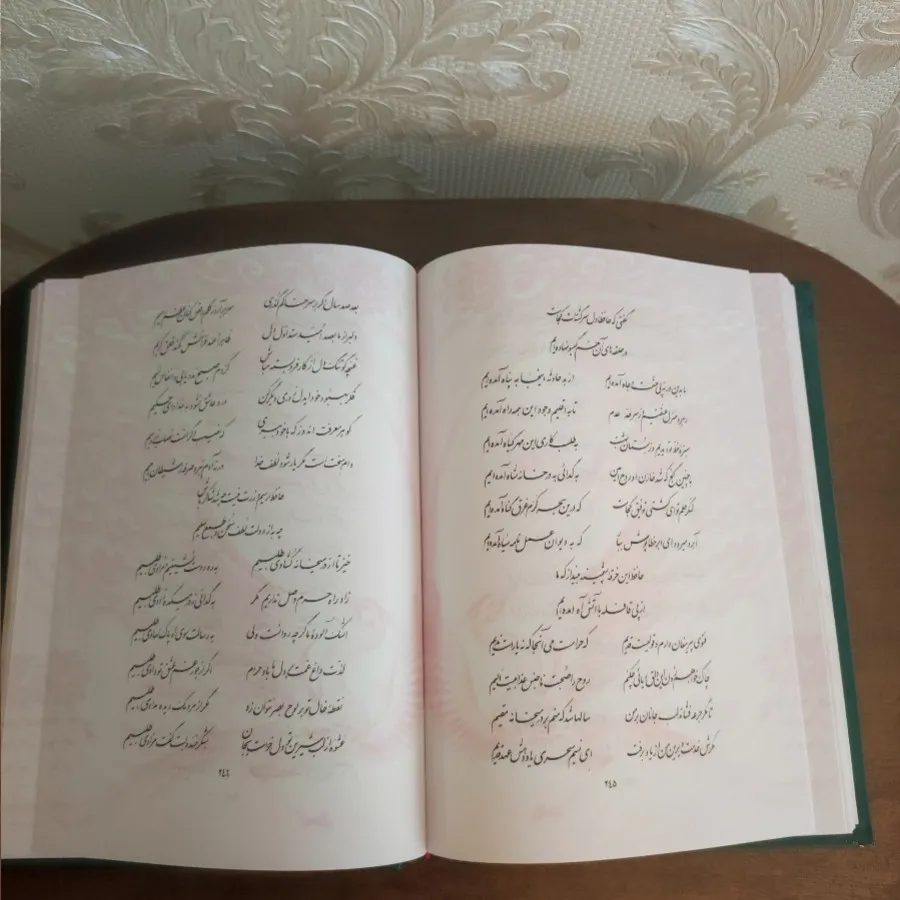 گفتی که حافظا دل سرگشته‌ات کجاست
در حلقه‌های آن خم گیسو نهاده‌ایم
ما بدین در نه پی حشمت و جاه آمده‌ایم از بد حادثه اینجا به پناه آمده‌ایم
رهرو منزل عشقیم و ز سرحد عدم تا به اقلیم وجود این همه راه آمده‌ایم
سبزه خط تو دیدیم و ز بستان بهشت به طلب کاری این مهر گیاه آمده‌ایم
با چنین گنج که شد خازن او روح امین به گدائی به در خانه شاه آمده‌ایم
لنگر حلم تو ای کشتی توفیق کجاست که درین بحر کرم غرق گناه آمده‌ایم
آبرو میرود ای ابر خطاپوش ببار که به دیوان عمل نامه سیاه آمده‌ایم
حافظ این خرقه پشمینه بینداز که ما
از پی قافله با آتش آه آمده‌ایم
فتوی پیر مغان دارم و قولیست قدیم که حرامست می آنجا که نه یارست ندیم
چاک خواهم زدن این دلق ریائی چکنم روح را صحبت ناجنس عذابیست الیم
تا مگر جرعه فشاند لب جانان بر من سالها شد که منم بر در میخانه مقیم
مگرش خدمت دیرین من از یاد برفت ای نسیم سحری یاد دهش عهد قدیم
۲۴۵
بعد صد سال اگر بر سر خاکم گذری سر برآرد ز گلم رقص کنان عظم رمیم
دلبر از ما به صد امید ستد اول دل ظاهرا عهد فرامش نکند خلق کریم
غنچه گو تنگ دل از کار فروبسته مباش کز دم صبح مدد یابی و انفاس نسیم
فکر بهبود خود ای دل ز دری دیگر کن درد عاشق نشود به به مداوای حکیم
گوهر معرفت اندوز که با خود ببری که نصیب دگرانست نصاب زر و سیم
دام سختست مگر یار شود لطف خدا ورنه آدم نبرد صرفه ز شیطان رجیم
حافظ ار سیم و زرت نیست چه شد شاکر باش
چه به از دولت لطف سخن و طبع سلیم
خیز تا از در میخانه گشادی طلبیم به ره دوست نشینیم و مرادی طلبیم
زاد راه حرم وصل نداریم مگر به گدائی ز در میکده زادی طلبیم
اشک آلوده ما گرچه روانست ولی به رسالت سوی او پاک نهادی طلبیم
لذت داغ غمت بر دل ما باد حرام اگر از جور غم عشق تو دادی طلبیم
نقطه خال تو بر لوح بصر نتوان زد مگر از مردمک دیده مدادی طلبیم
عشوه‌ای از لب شیرین تو دل خواست بجان بشکر خنده لبت گفت مزادی طلبیم
۲۴۶